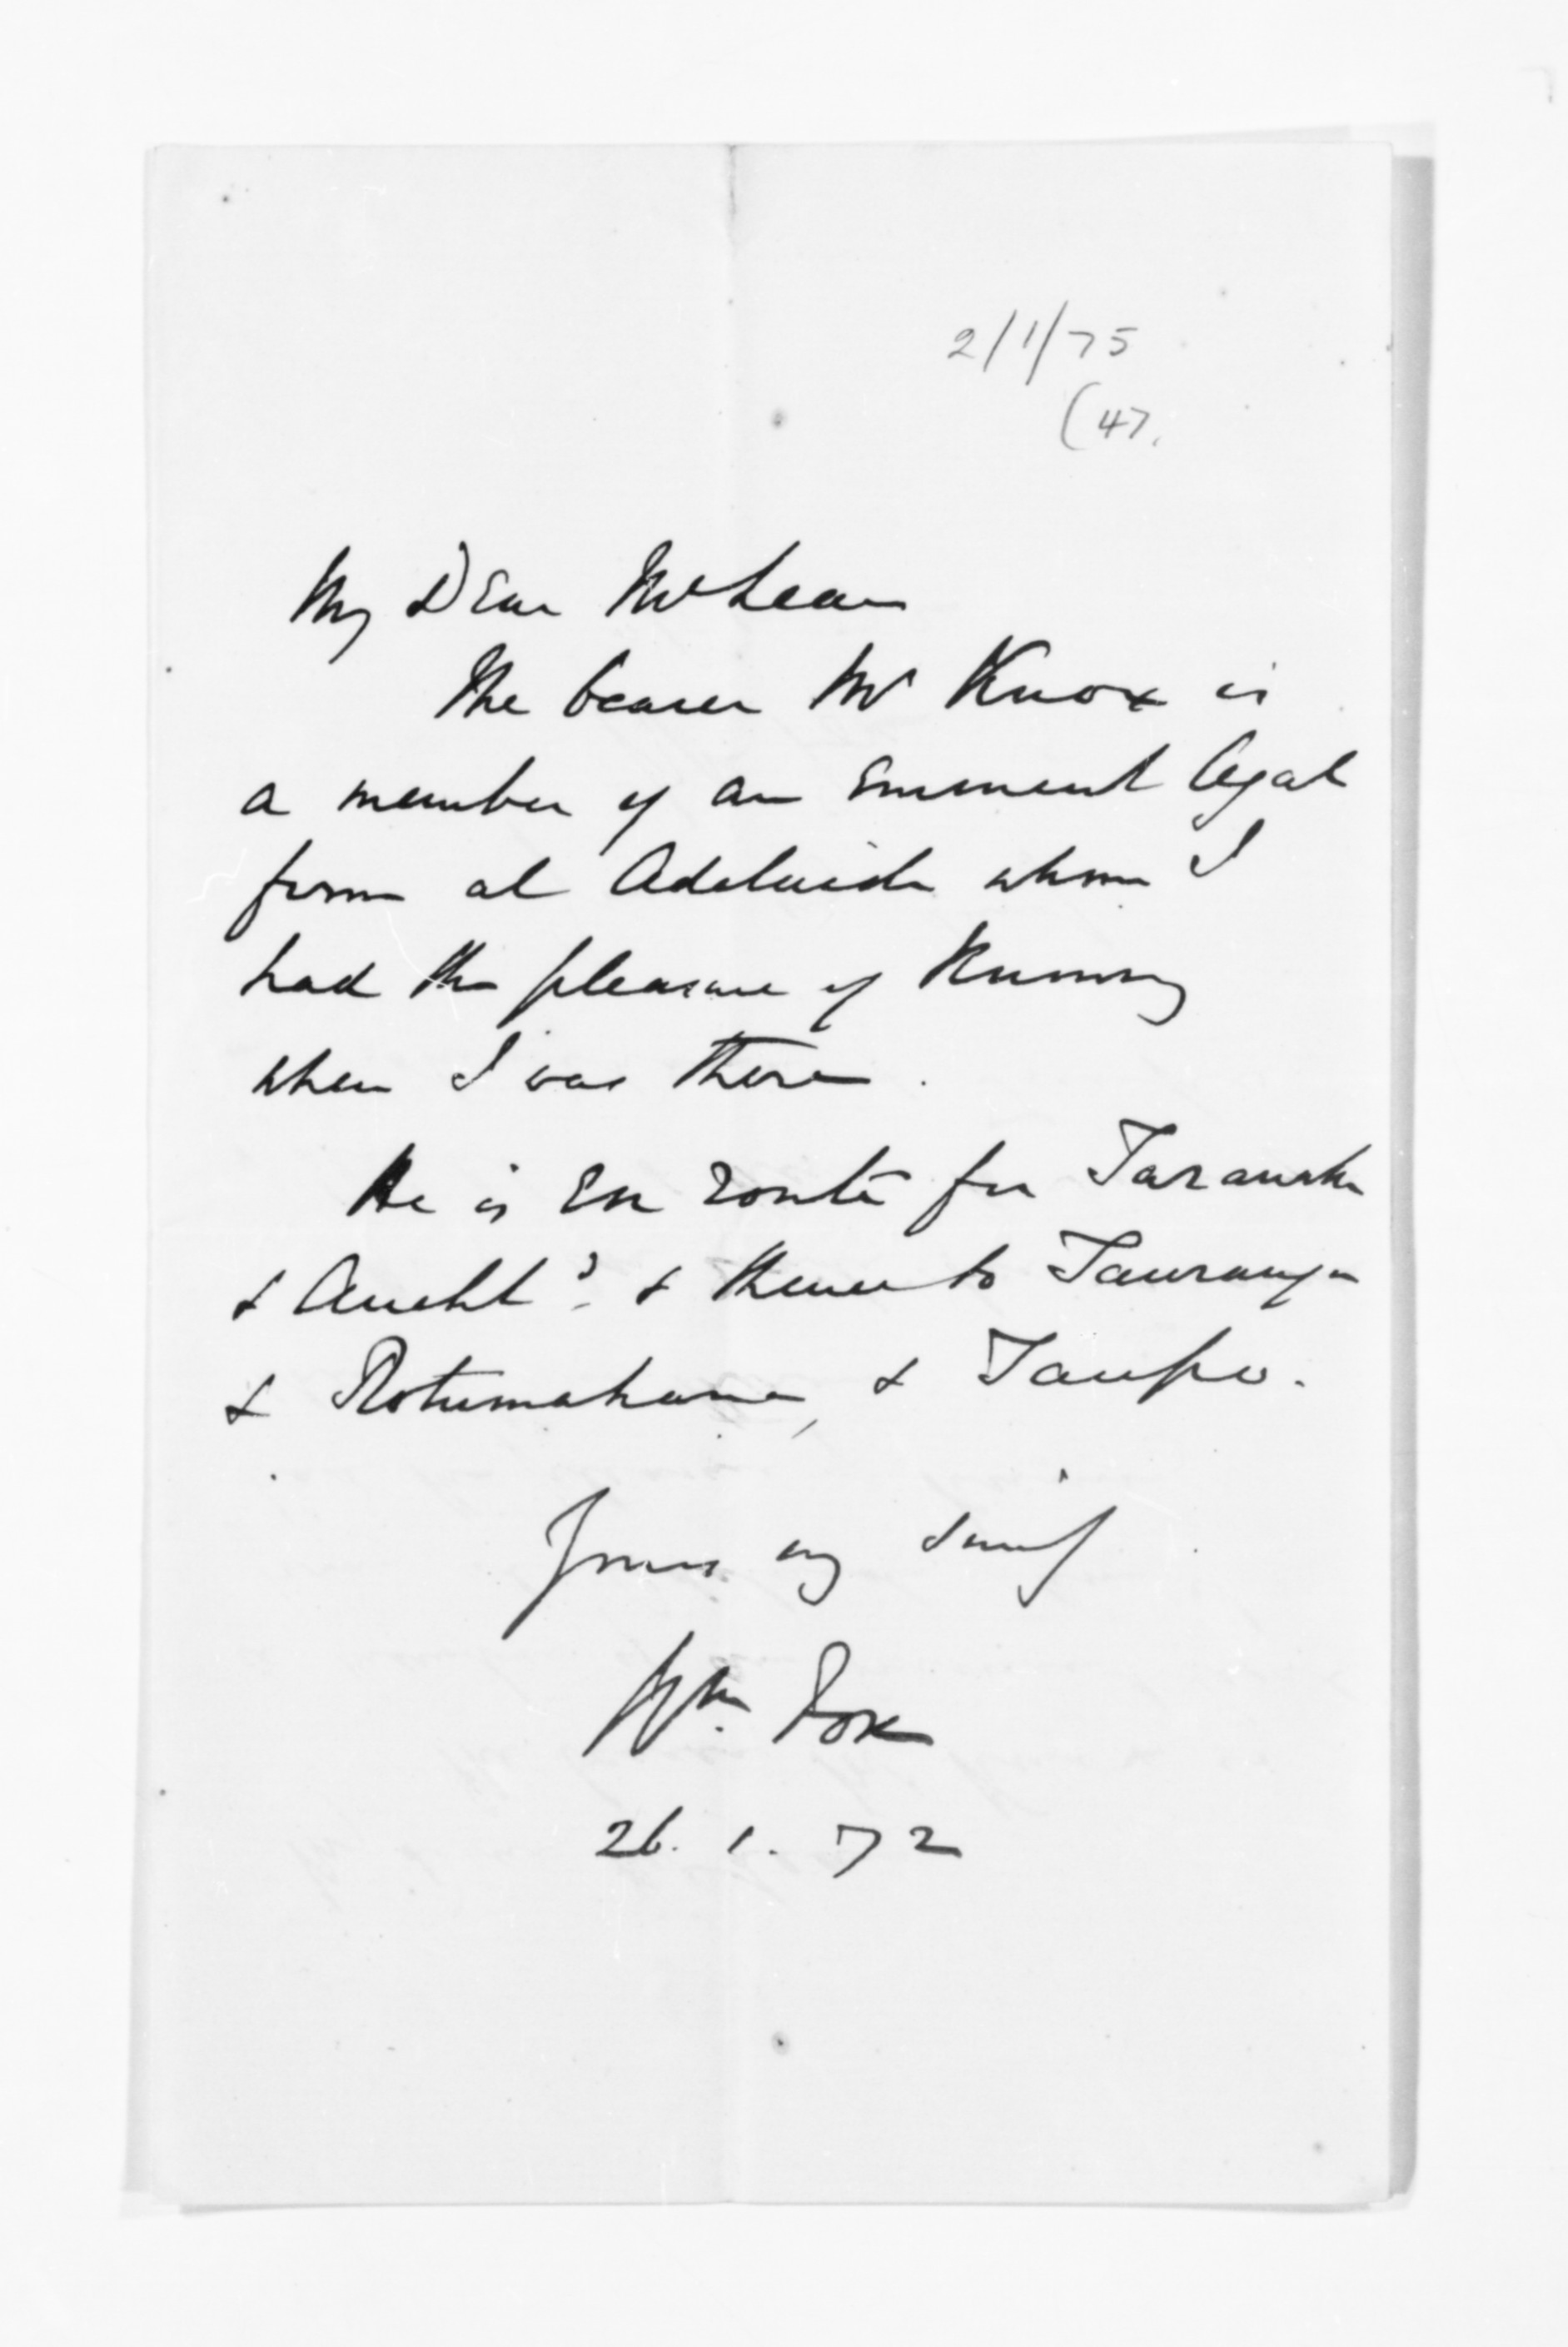 2/1/75
(47.
My Dear McLean
The bearer Mr Knox is
a member of an Eminent legal
firm at Adelaide whom I
had the pleasure of Knowing
when I was there.
He is En route for Taranaki
& Auckld. & thence to Tauranga
& Rotumahana, & Taupo.
Yours vy sincly
Wm. Fox
26. 1. 72